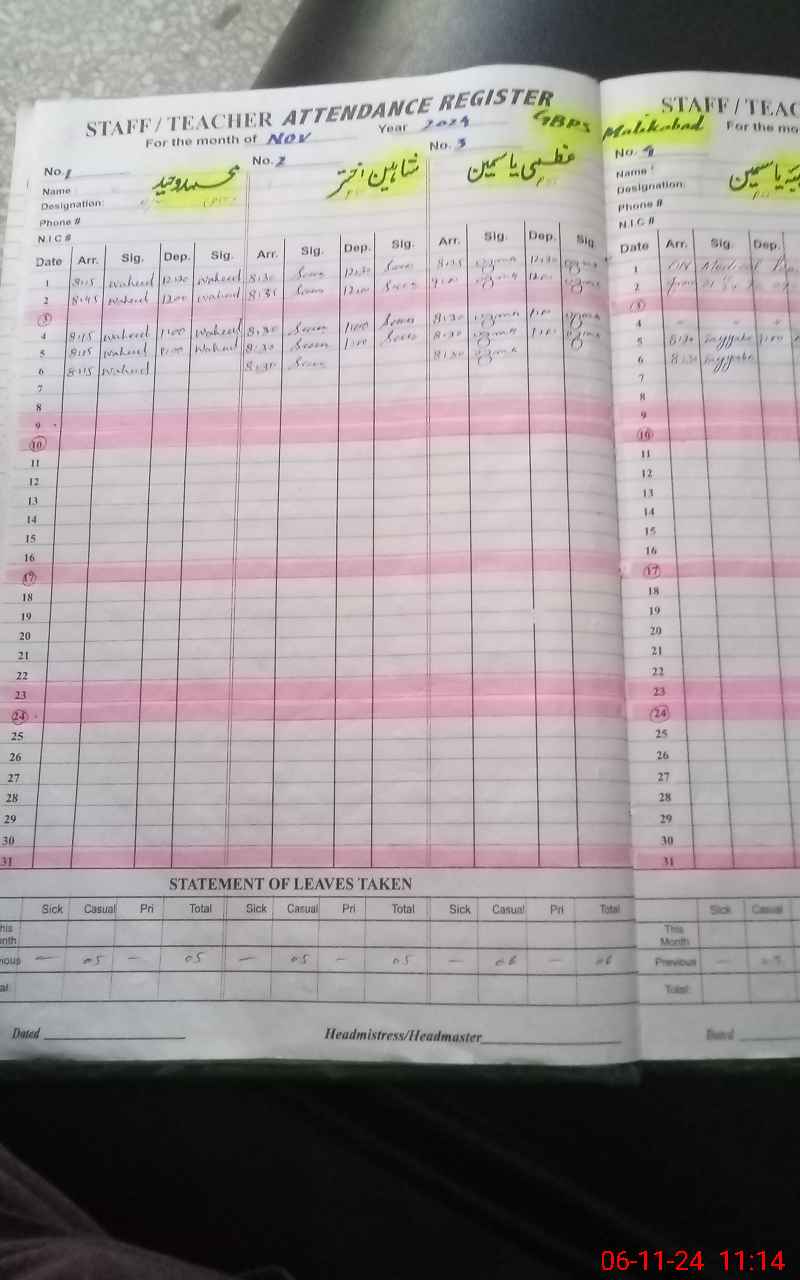 STAFF / TEACHER ATTENDANCE REGISTER
For the month of Nov Year 2024 GBPS Malikabad
No. 1 No. 2 No. 3
Name محمد وحید شاہین اختر عظمیٰ یاسمین
Designation:
Phone #
N.I.C #
Date Arr. Sig. Dep. Sig. Arr. Sig. Dep. Sig. Arr. Sig. Dep. Sig.
1 8:15 waheed 12:30 waheed 8:30 12:30 8:25 uzma 12:30 uzma
2 8:45 waheed 12:00 waheed 8:35 12:00 9:00 uzma 12:00 uzma
3
4 8:15 waheed 1:00 waheed 8:30 1:00 8:30 uzma 1:00 uzma
5 8:15 waheed 1:00 waheed 8:30 1:00 8:30 uzma 1:00 uzma
6 8:15 waheed 8:30 8:30 uzma
7
8
9
10
11
12
13
14
15
16
17
18
19
20
21
22
23
24
25
26
27
28
29
30
31
STATEMENT OF LEAVES TAKEN
Sick Casual Pri Total Sick Casual Pri Total Sick Casual Pri Total
his
nth
ious — 05 — 05 — 05 — 05 — 06 — 06
al:
Dated Headmistress/Headmaster
STAFF / TEAC
For the mo
No. 4
Name یاسمین
Designation:
Phone #
N.I.C #
Date Arr. Sig. Dep.
1
2
3
4
5 8:30 Tayyaba 1:00
6 8:30 Tayyaba
7
8
9
10
11
12
13
14
15
16
17
18
19
20
21
22
23
24
25
26
27
28
29
30
31
Sick Casual
This
Month
Previous —
Total:
Dated
06-11-24 11:14